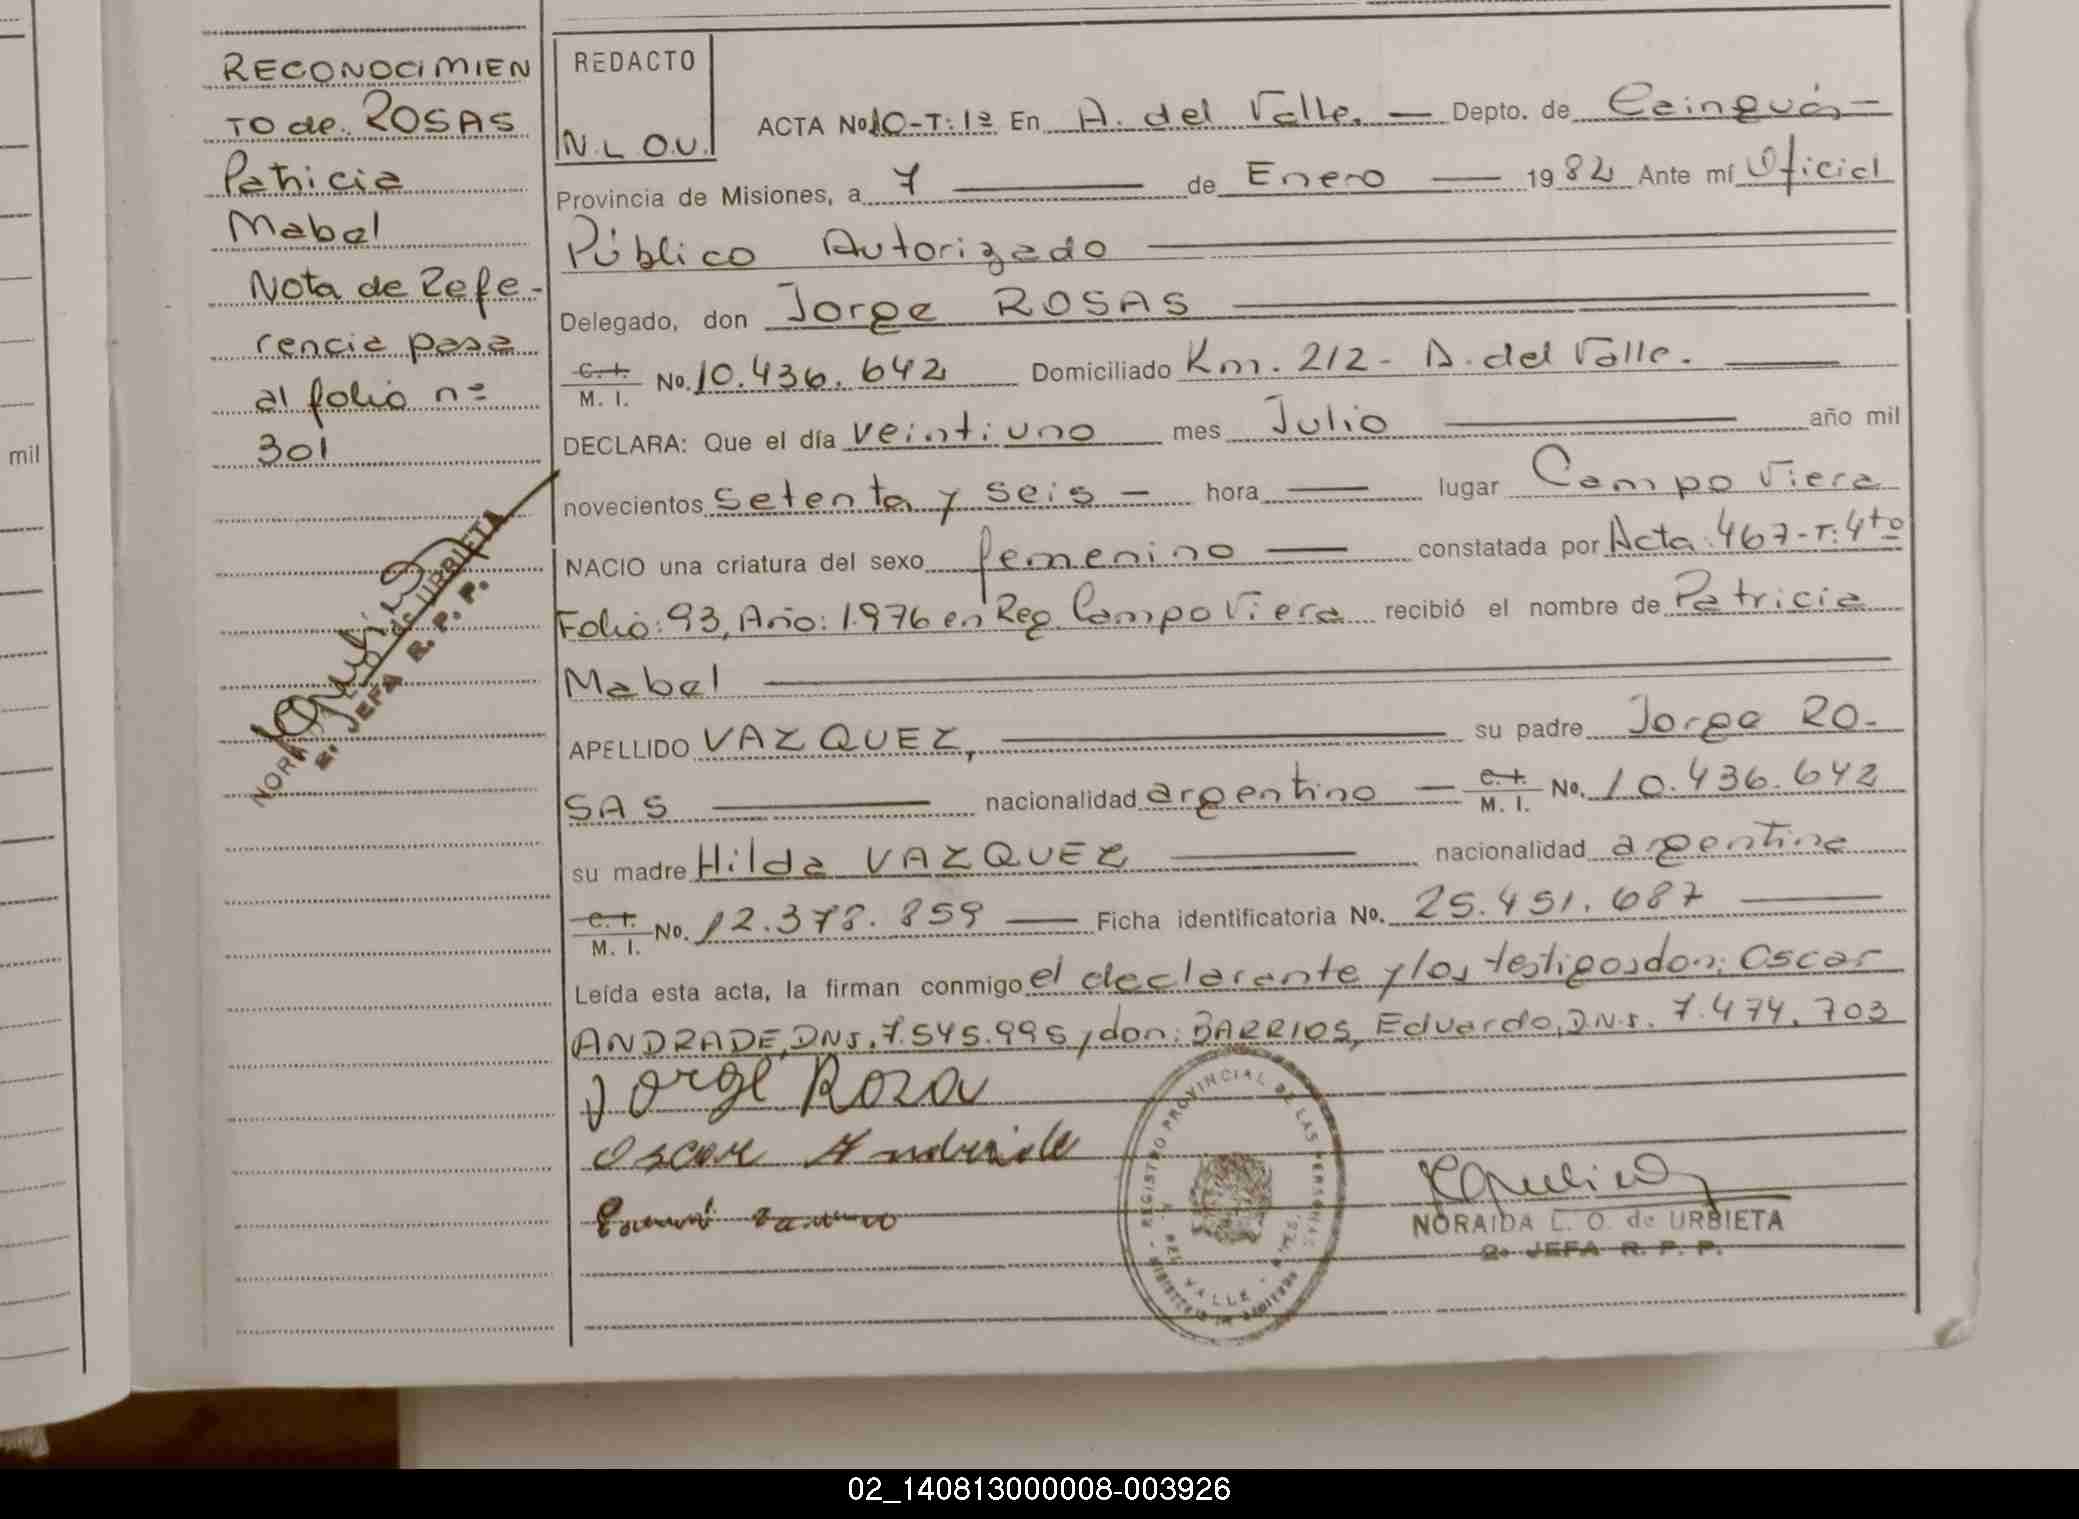 RECONOCIMIEN
TO de. ROSAS
Patricia
Mabel
Nota de Refe-
rencia pasa
al folio nº
301
NORAIDA L. O. de URBIETA
2º JEFA R. P. P.
mil
REDACTO
N. L O.U.
ACTA No 10-T:1º En A. del Valle. — Depto. de Cainguás —
Provincia de Misiones, a 7 — de Enero — 1982 Ante mí Oficial
Público Autorizado
Delegado, don Jorge ROSAS
C. I.
M. I. No. 10.436.642 Domiciliado Km. 212 - A. del Valle.
DECLARA: Que el día veintiuno mes Julio — año mil
novecientos setenta y seis — hora — lugar Campo Viera
NACIO una criatura del sexo femenino — constatada por Acta: 467-T:4to
Folio: 93, Año: 1.976 en Reg. Campo Viera recibió el nombre de Patricia
Mabel
APELLIDO VAZQUEZ, — su padre Jorge RO-
SAS — nacionalidad argentino — C. I.
M. I. No. 10.436.642
su madre Hilda VAZQUEZ — nacionalidad argentina
C. I.
M. I. No. 12.378.859 — Ficha identificatoria No. 25.451.687 —
Leída esta acta, la firman conmigo el declarante y los testigos don: Oscar
ANDRADE, DNI. 7.545.995 y don: BARRIOS, Eduardo, D.N.I. 7.474.703
Jorge Rosa
Oscar Andrade
REGISTRO PROVINCIAL DE LAS PERSONAS
A. DEL VALLE - MNES.
NORAIDA L. O. de URBIETA
2º JEFA R. P. P.
02_140813000008-003926